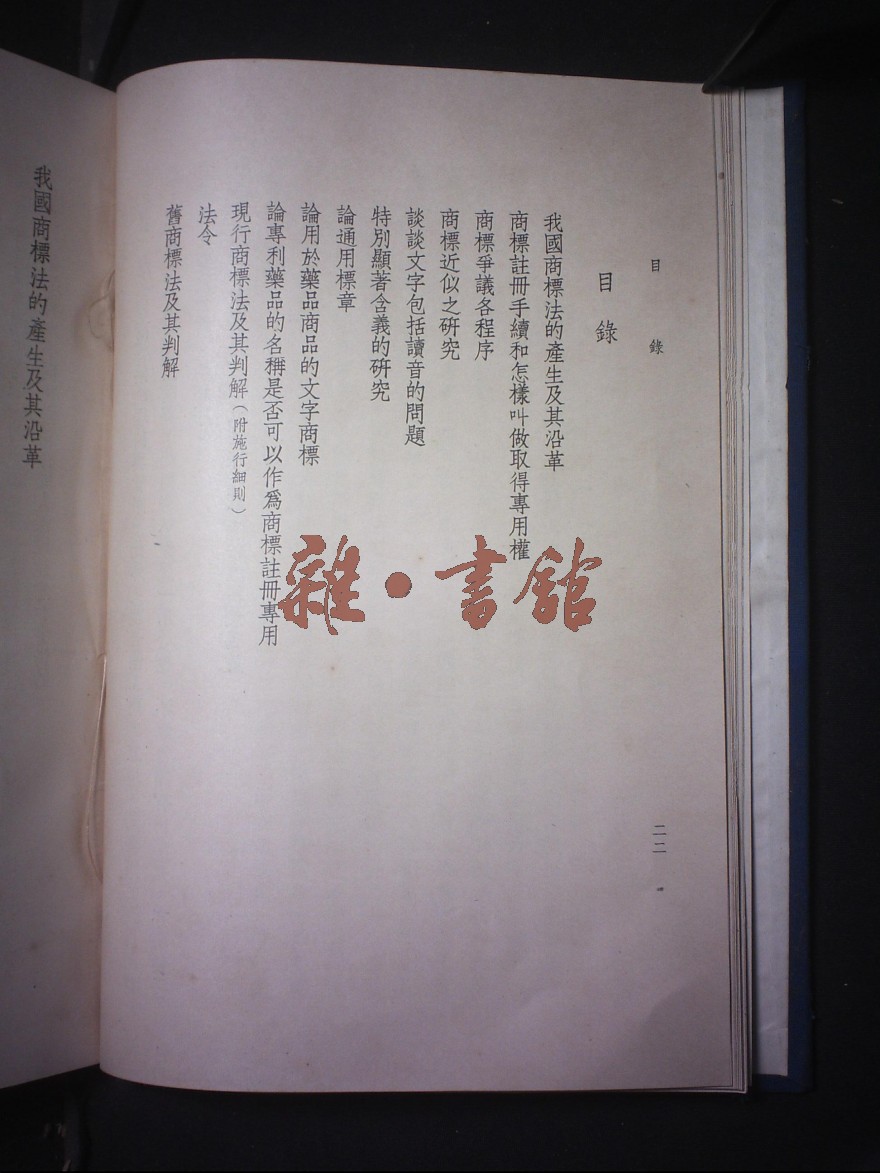 目錄
二二
目錄
我國商標法的產生及其沿革
商標註冊手續和怎樣叫做取得專用權
商標爭議各程序
商標近似之研究
談談文字包括讀音的問題
特別顯著含義的研究
論通用標章
論用於藥品商品的文字商標
論專利藥品的名稱是否可以作爲商標註冊專用
現行商標法及其判解（附施行細則）
法令
舊商標法及其判解
雜·書館
我國商標法的產生及其沿革